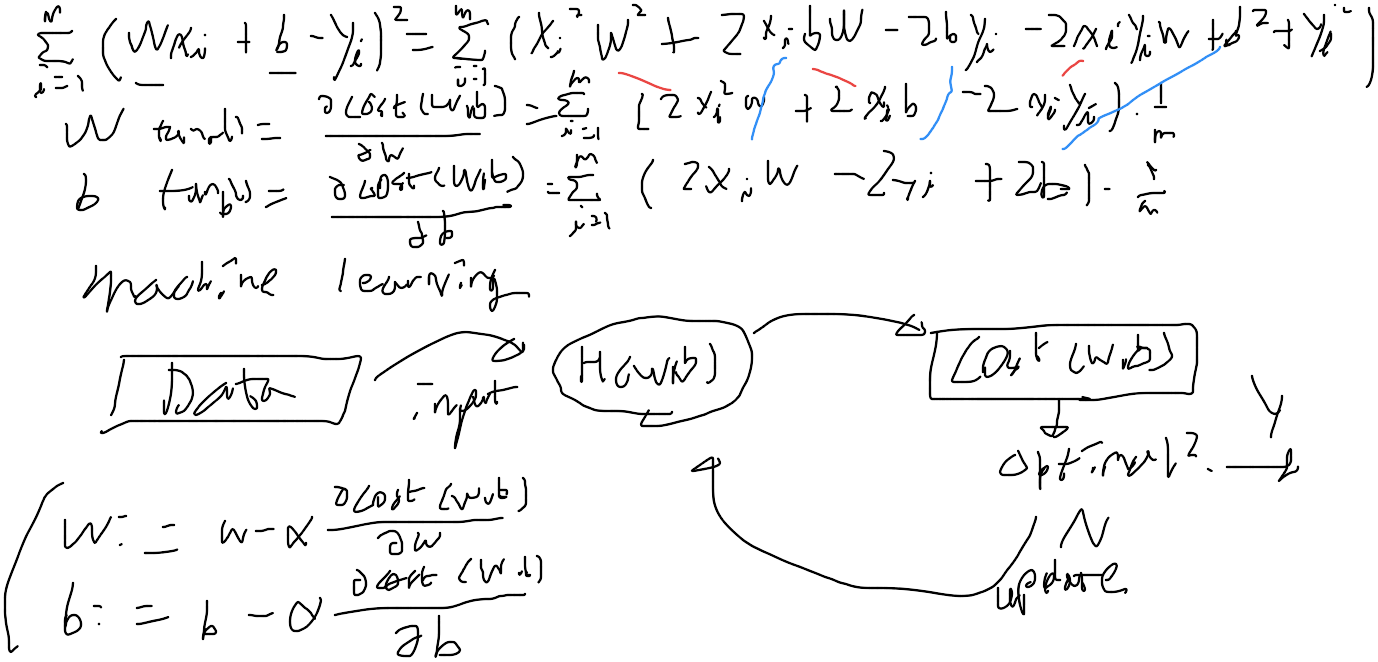 ∑_{i=1}^{m} (Wx_i + b - y_i)² = ∑_{i=1}^{m} (x_i² W² + 2x_i bW - 2by_i - 2x_i y_i w + b² + y_i²)
W tan(w) = ∂cost(w,b)/∂w = ∑_{i=1}^{m} (2x_i² w + 2x_i b - 2x_i y_i) · 1/m
b tan(b) = ∂cost(w,b)/∂b = ∑_{i=1}^{m} (2x_i W - 2y_i + 2b) · 1/m
machine learning
Data
input
H(w,b)
Cost(w,b)
optimal?
Y
N
update
w := w - α ∂cost(w,b)/∂w
b := b - α ∂cost(w,b)/∂b